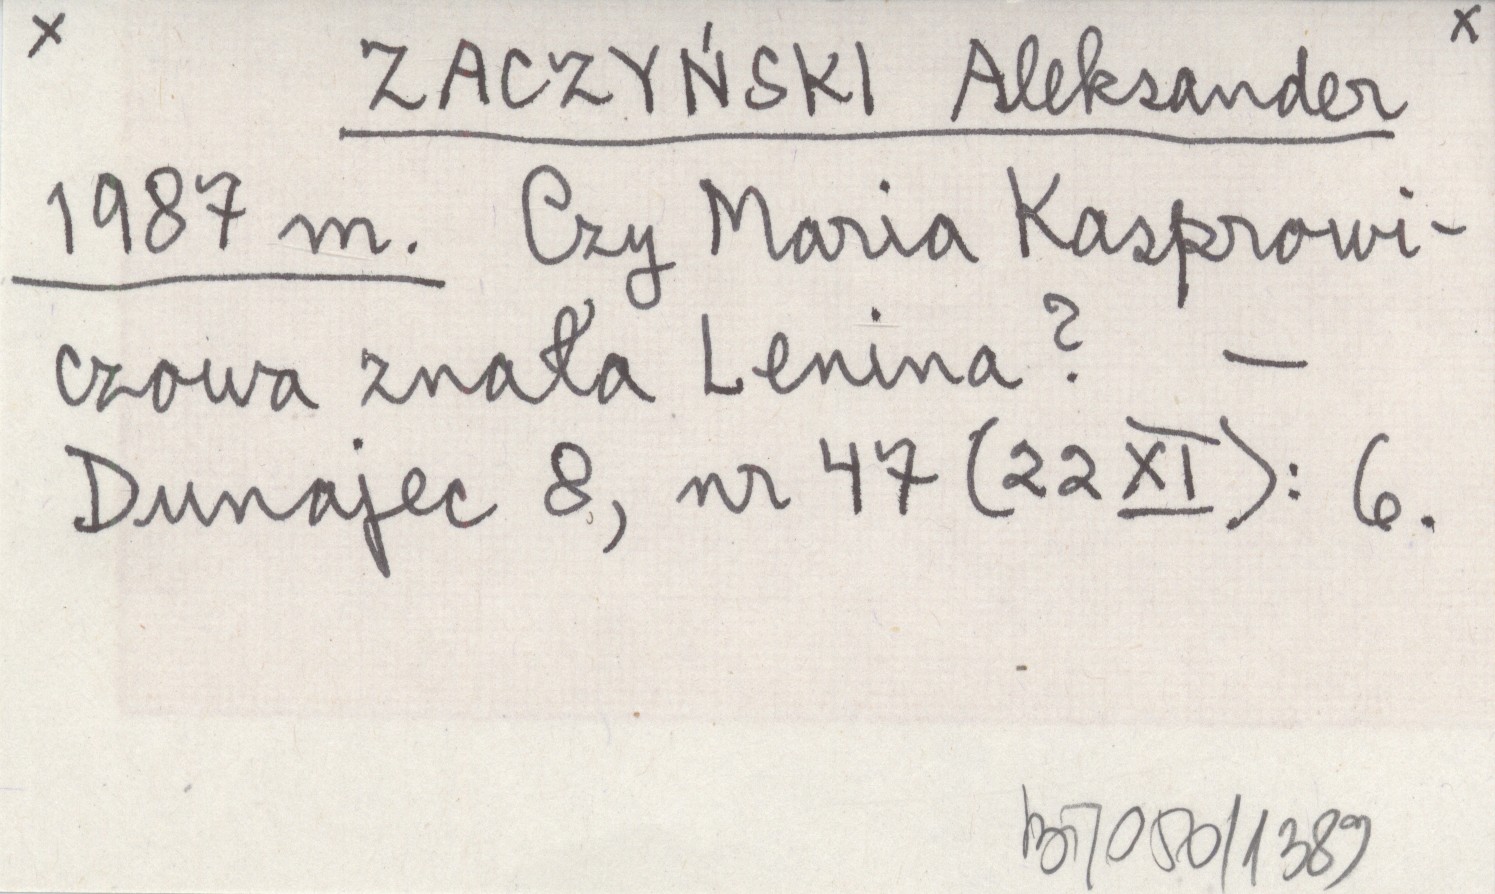 x x
ZACZYŃSKI Aleksander
1987 m. Czy Maria Kasprowi-
czowa znała Lenina? —
Dunajec 8, nr 47 (22 XI): 6.